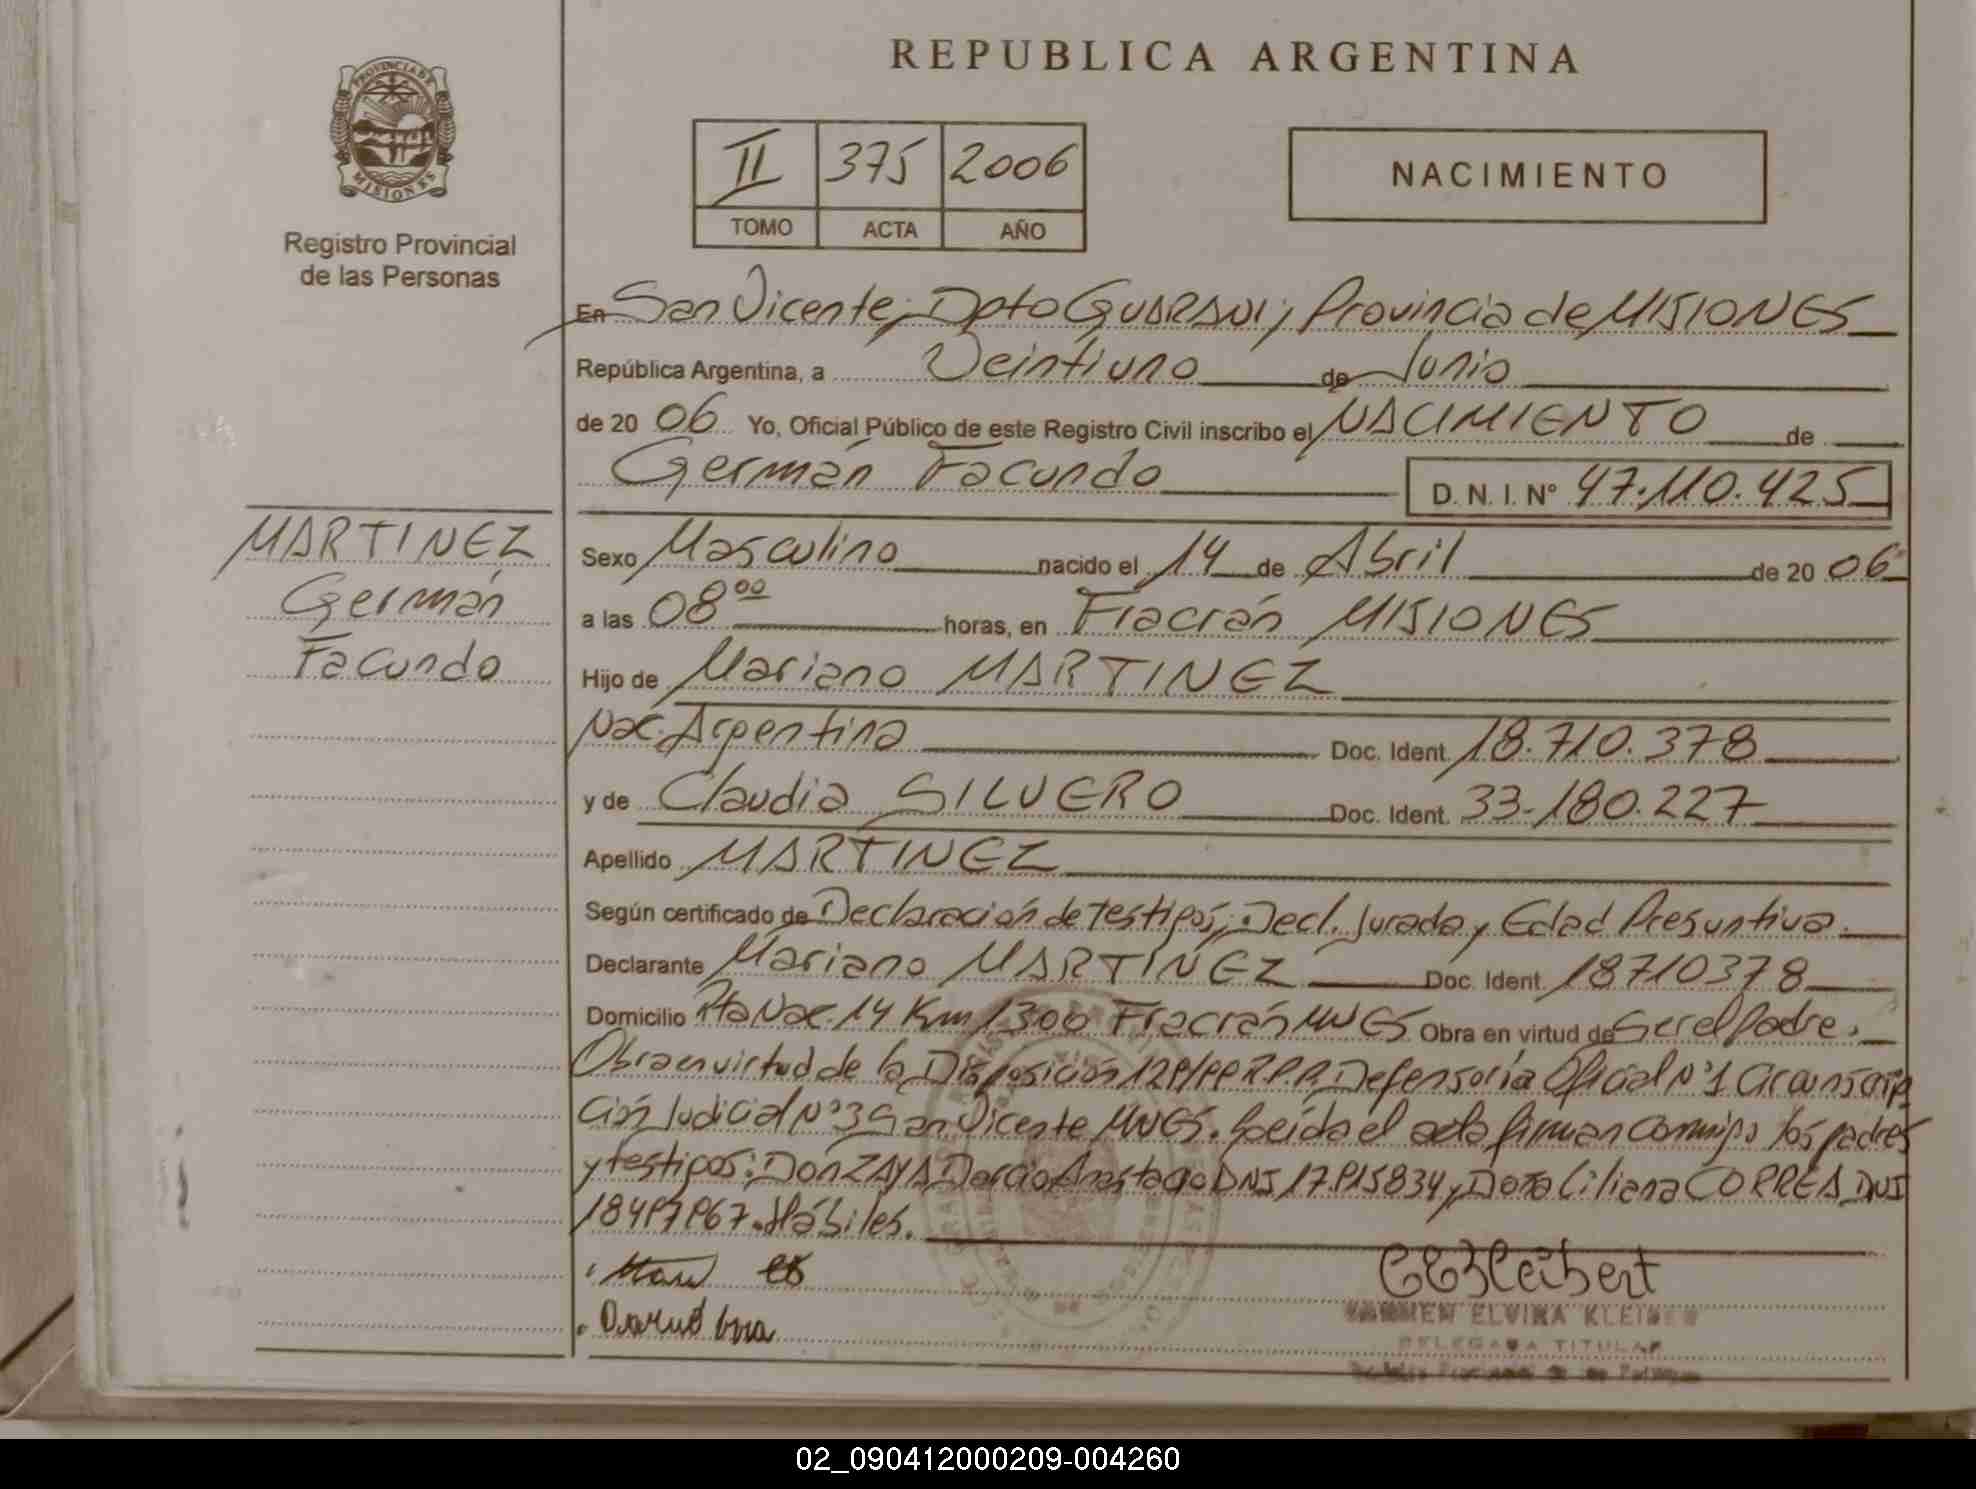 REPUBLICA ARGENTINA
PROVINCIA DE
MISIONES
Registro Provincial
de las Personas
II 375 2006
TOMO ACTA AÑO
NACIMIENTO
En San Vicente, Dpto GUARANI, Provincia de MISIONES
República Argentina, a Veintiuno de Junio
de 20 06 Yo, Oficial Público de este Registro Civil inscribo el NACIMIENTO de
Germán Facundo D. N. I. Nº 47.110.425
MARTINEZ
Germán
Facundo
Sexo Masculino nacido el 14 de Abril de 20 06
a las 08 00 horas, en Fracrán MISIONES
Hijo de Mariano MARTINEZ
Nac. Argentina Doc. Ident. 18.710.378
y de Claudia SILVERO Doc. Ident. 33.180.227
Apellido MARTINEZ
Según certificado de Declaración de testigos, Decl. Jurada y Edad Presuntiva.
Declarante Mariano MARTINEZ Doc. Ident. 18710378
Domicilio Rta Nac. 14 Km 1300 Fracrán MNES Obra en virtud de Ser el Padre.
Obra en virtud de la Disposición Defensoría Oficial Nº 1 Circunscrip
ción Judicial Nº 3 San Vicente MNES. Leída el acta firman conmigo los padres
y testigos: Don ZAYA Darcio DNI y Doña Liliana CORREA DNI
Hábiles.
ELVIRA
DELEGADA TITULAR
02_090412000209-004260